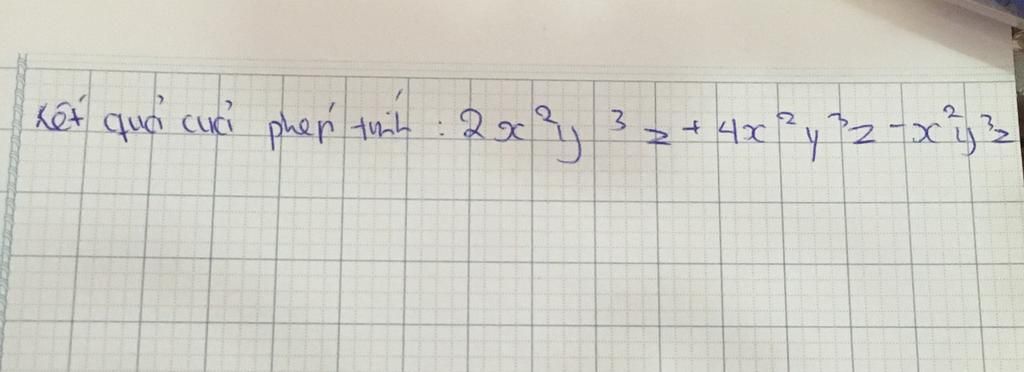 Kết quả cuả phép tính : 2x²y³z + 4x²y³z - x²y³z